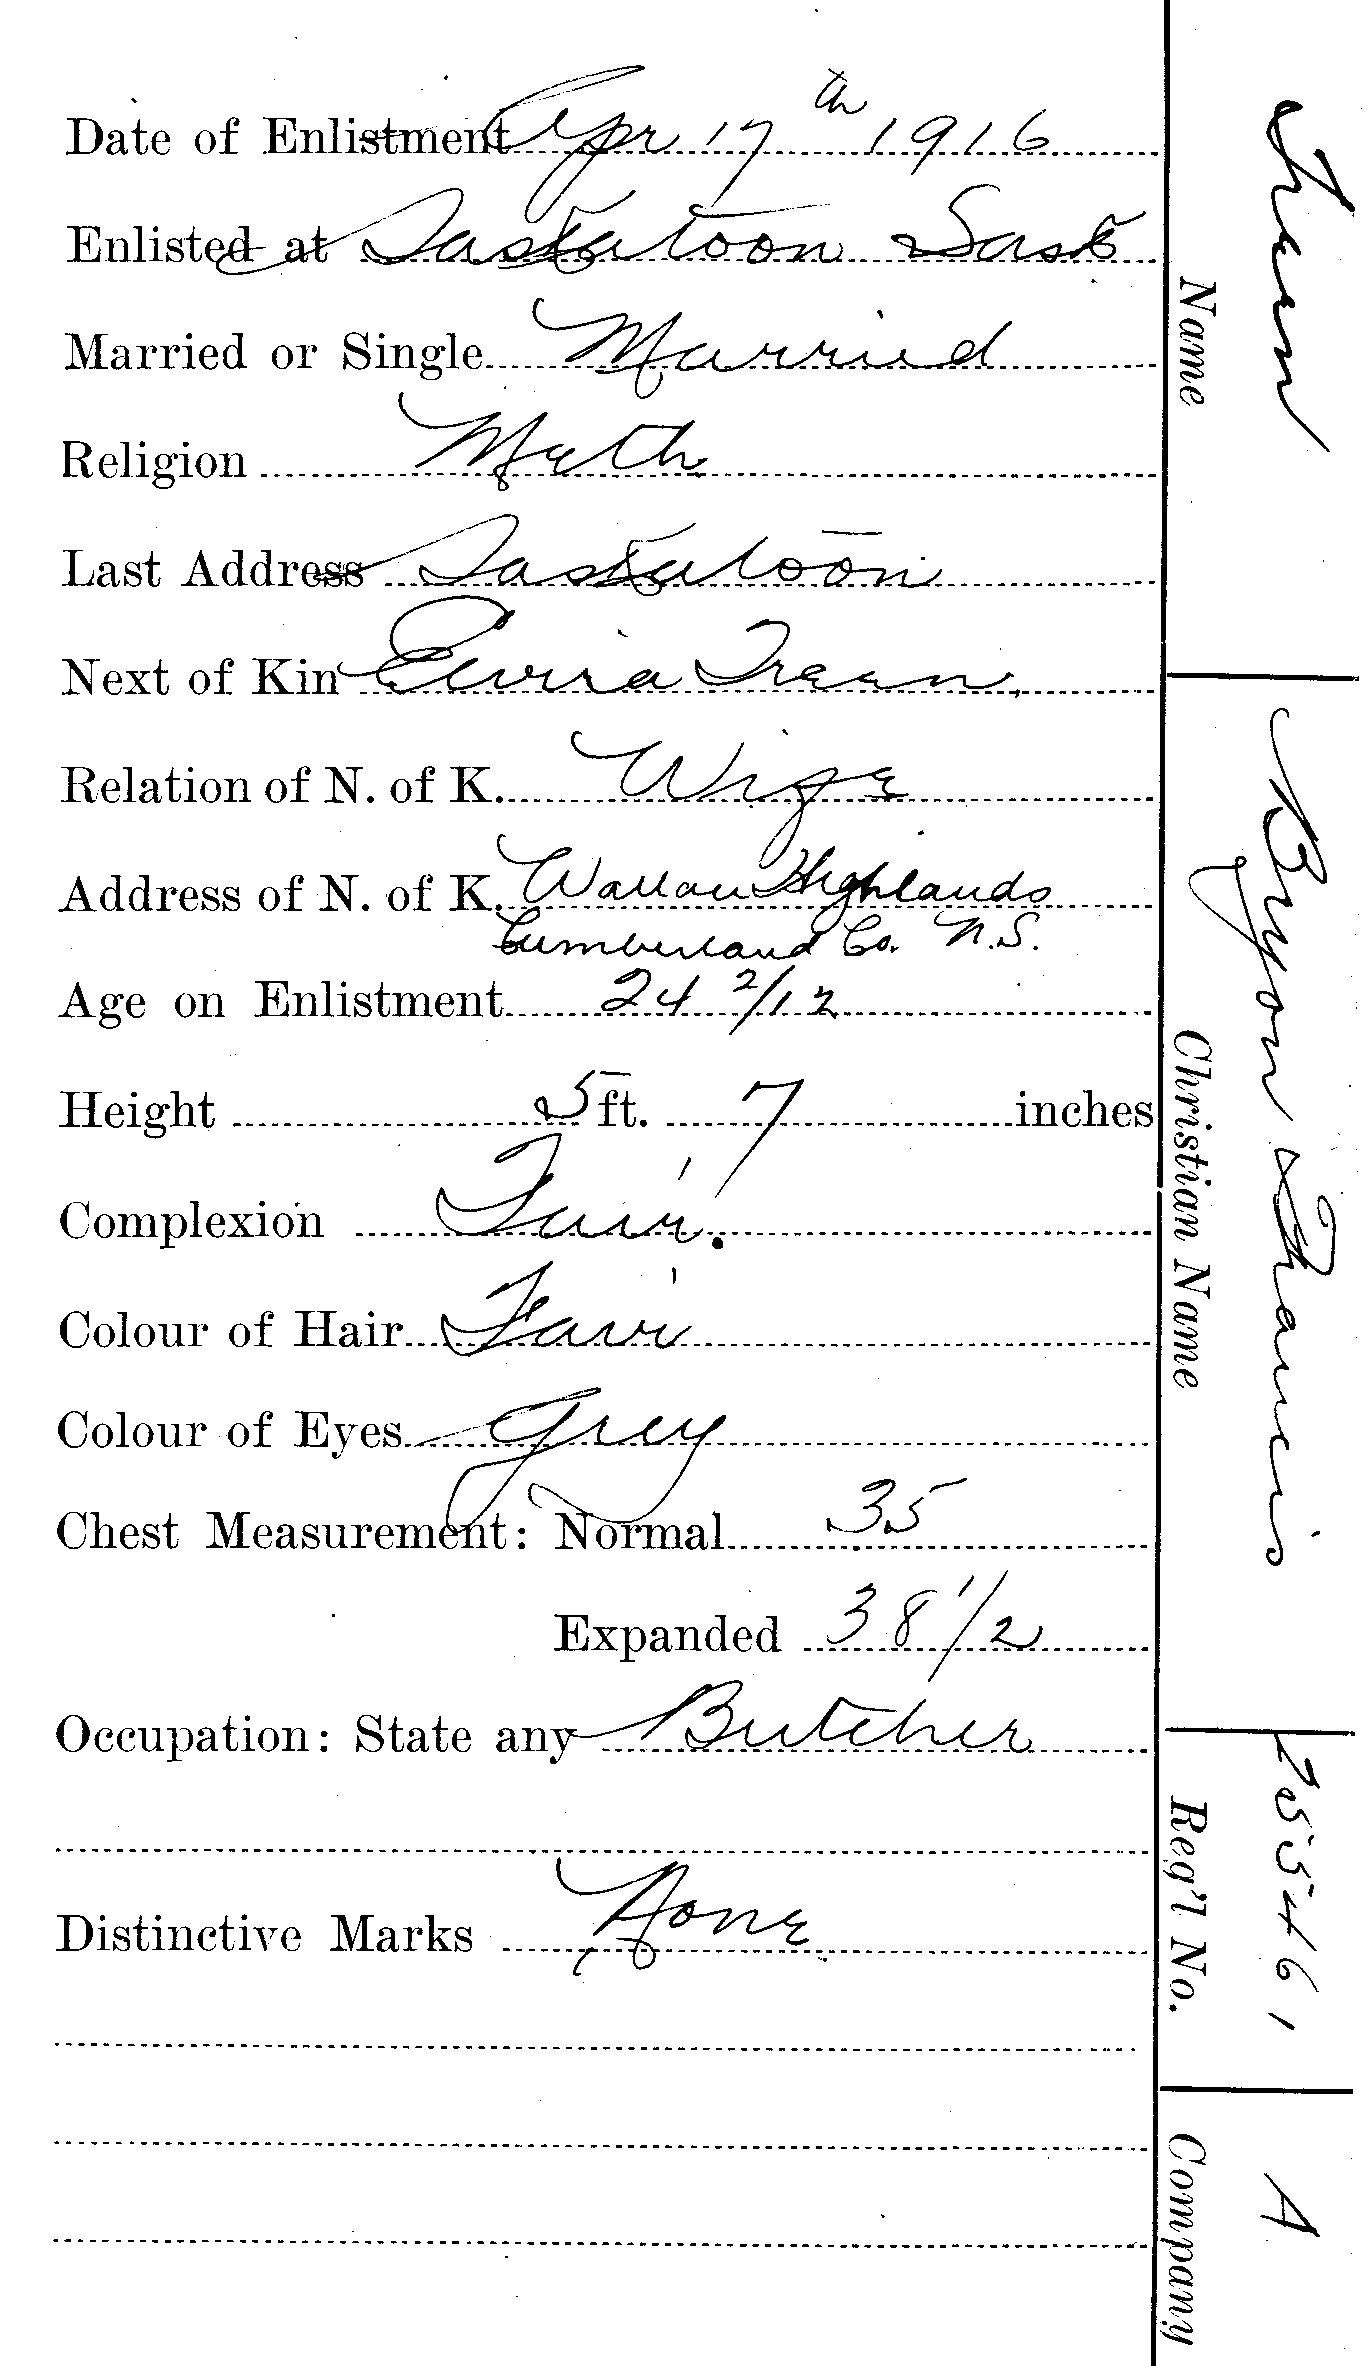 Date of Enlistment Apr 17th 1916
Enlisted at Saskatoon Sask
Married or Single Married
Religion Meth
Last Address Saskatoon
Next of Kin Elvira Treen,
Relation of N. of K. Wife
Address of N. of K. Wallace Highlands
Cumberland Co. N.S.
Age on Enlistment 24 2/12
Height 5 ft. 7 inches
Complexion Fair.
Colour of Hair Fair
Colour of Eyes Grey
Chest Measurement: Normal 35
Expanded 38 1/2
Occupation: State any Butcher
Distinctive Marks None
Treen
Name
Byron Francis
Christian Name
255461
Reg'l No.
A
Company